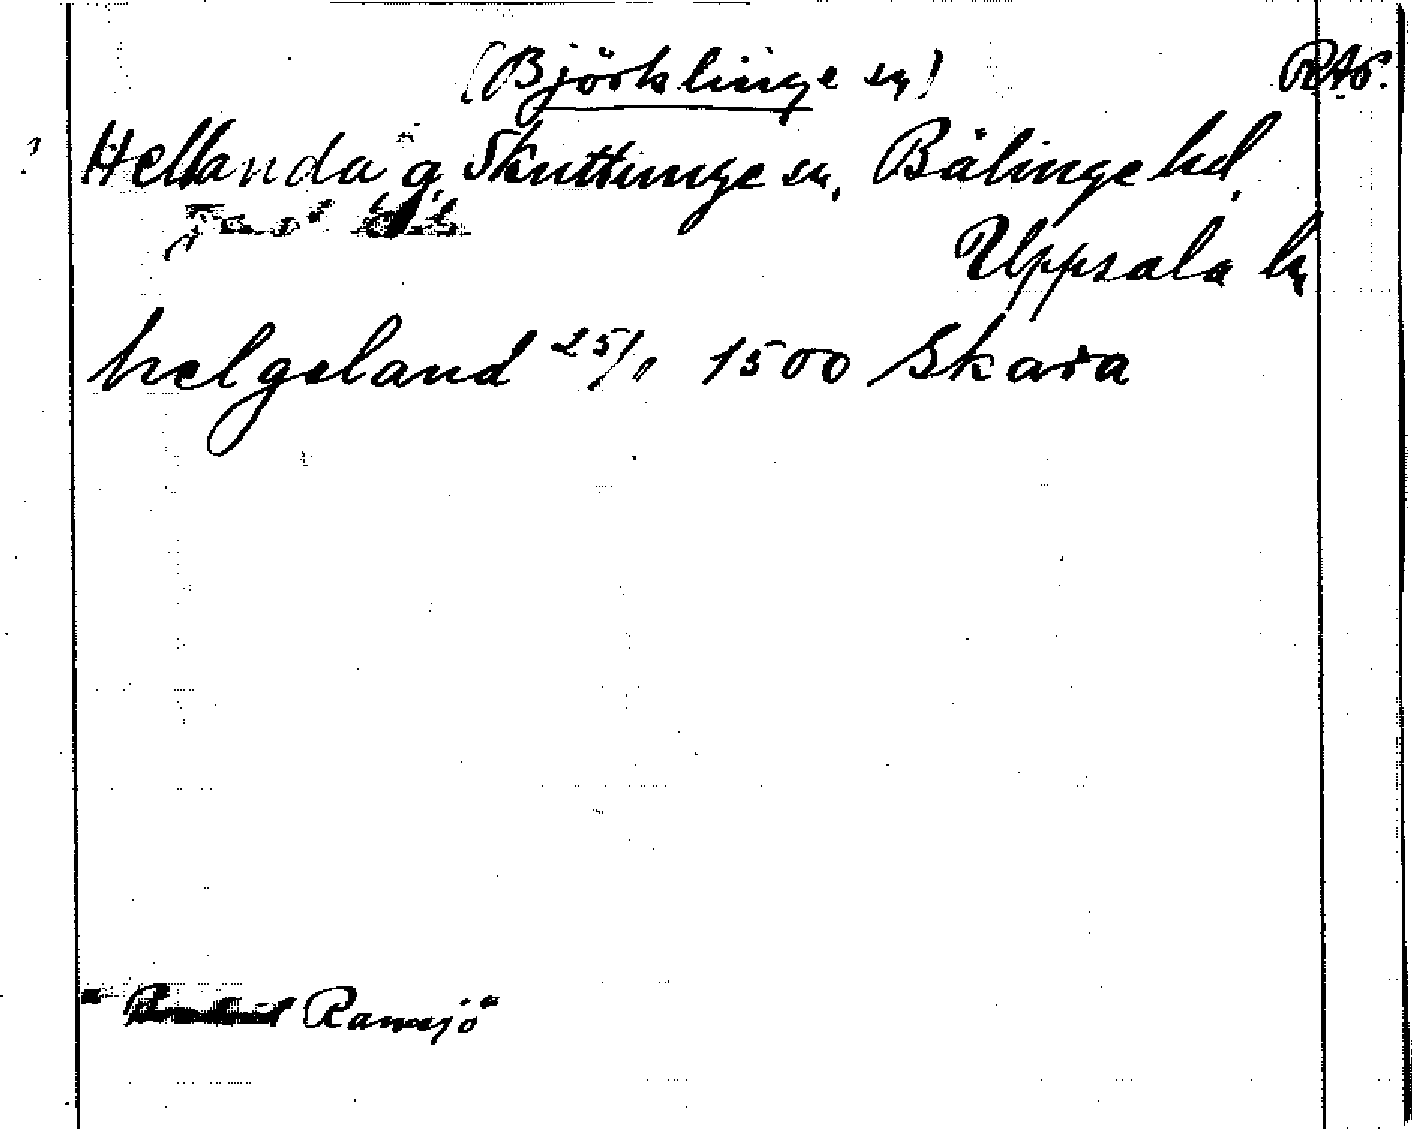 (Björklinge sn) RAp.
? Hellanda, g. Skuttunge sn, Bälinge hd,
Uppsala ln
helgeland 25/1 1500 Skara
" Ramsjö "